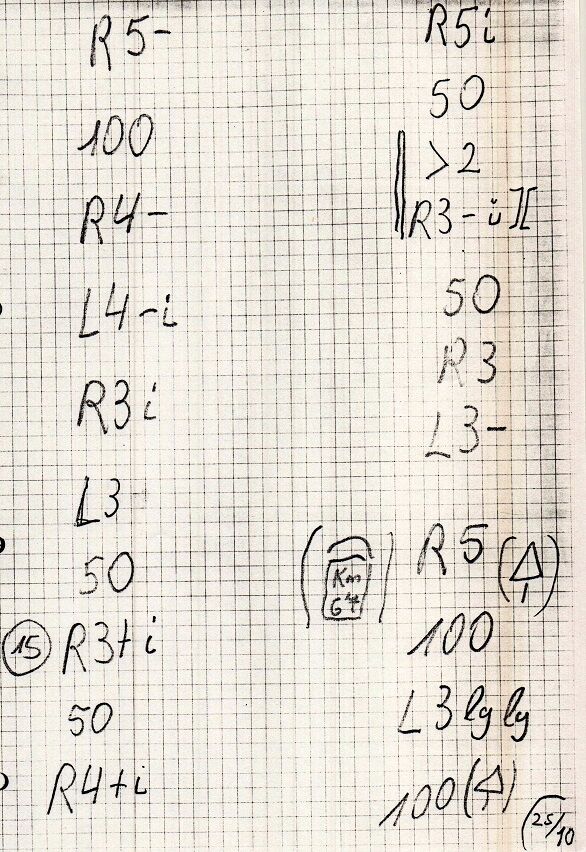 R5-
100
R4-
L4-i
R3i
L3
50
15 R3+i
50
R4+i
R5i
50
>2
R3-ü][
50
R3
L3-
Km
64
R5
100
L3 lg lg
100
25/10